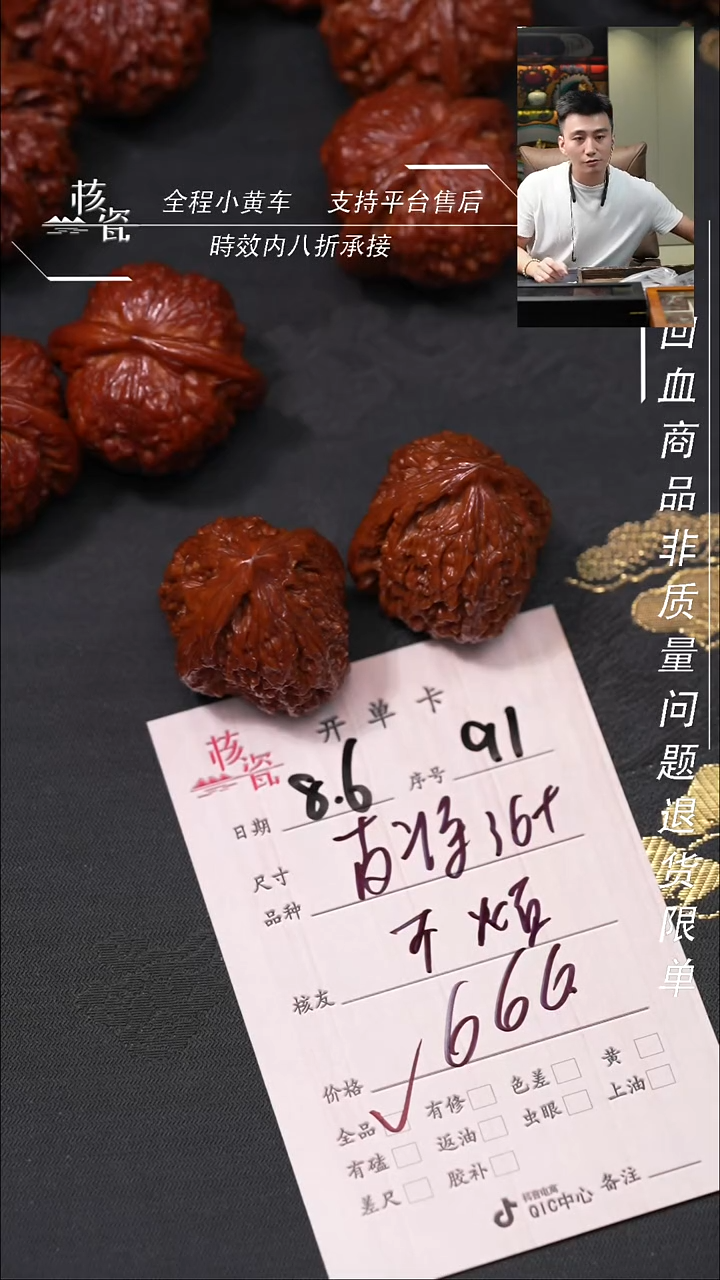 核瓷
全程小黄车 支持平台售后
時效内八折承接
回血商品非质量问题退货限单
核瓷 开单卡
日期 8.6 序号 91
尺寸
品种
核友
价格 666
全品 ✓ 有修 色差 黄
有磕 返油 虫眼 上油
差尺 胶补
抖音电商
QIC中心 备注